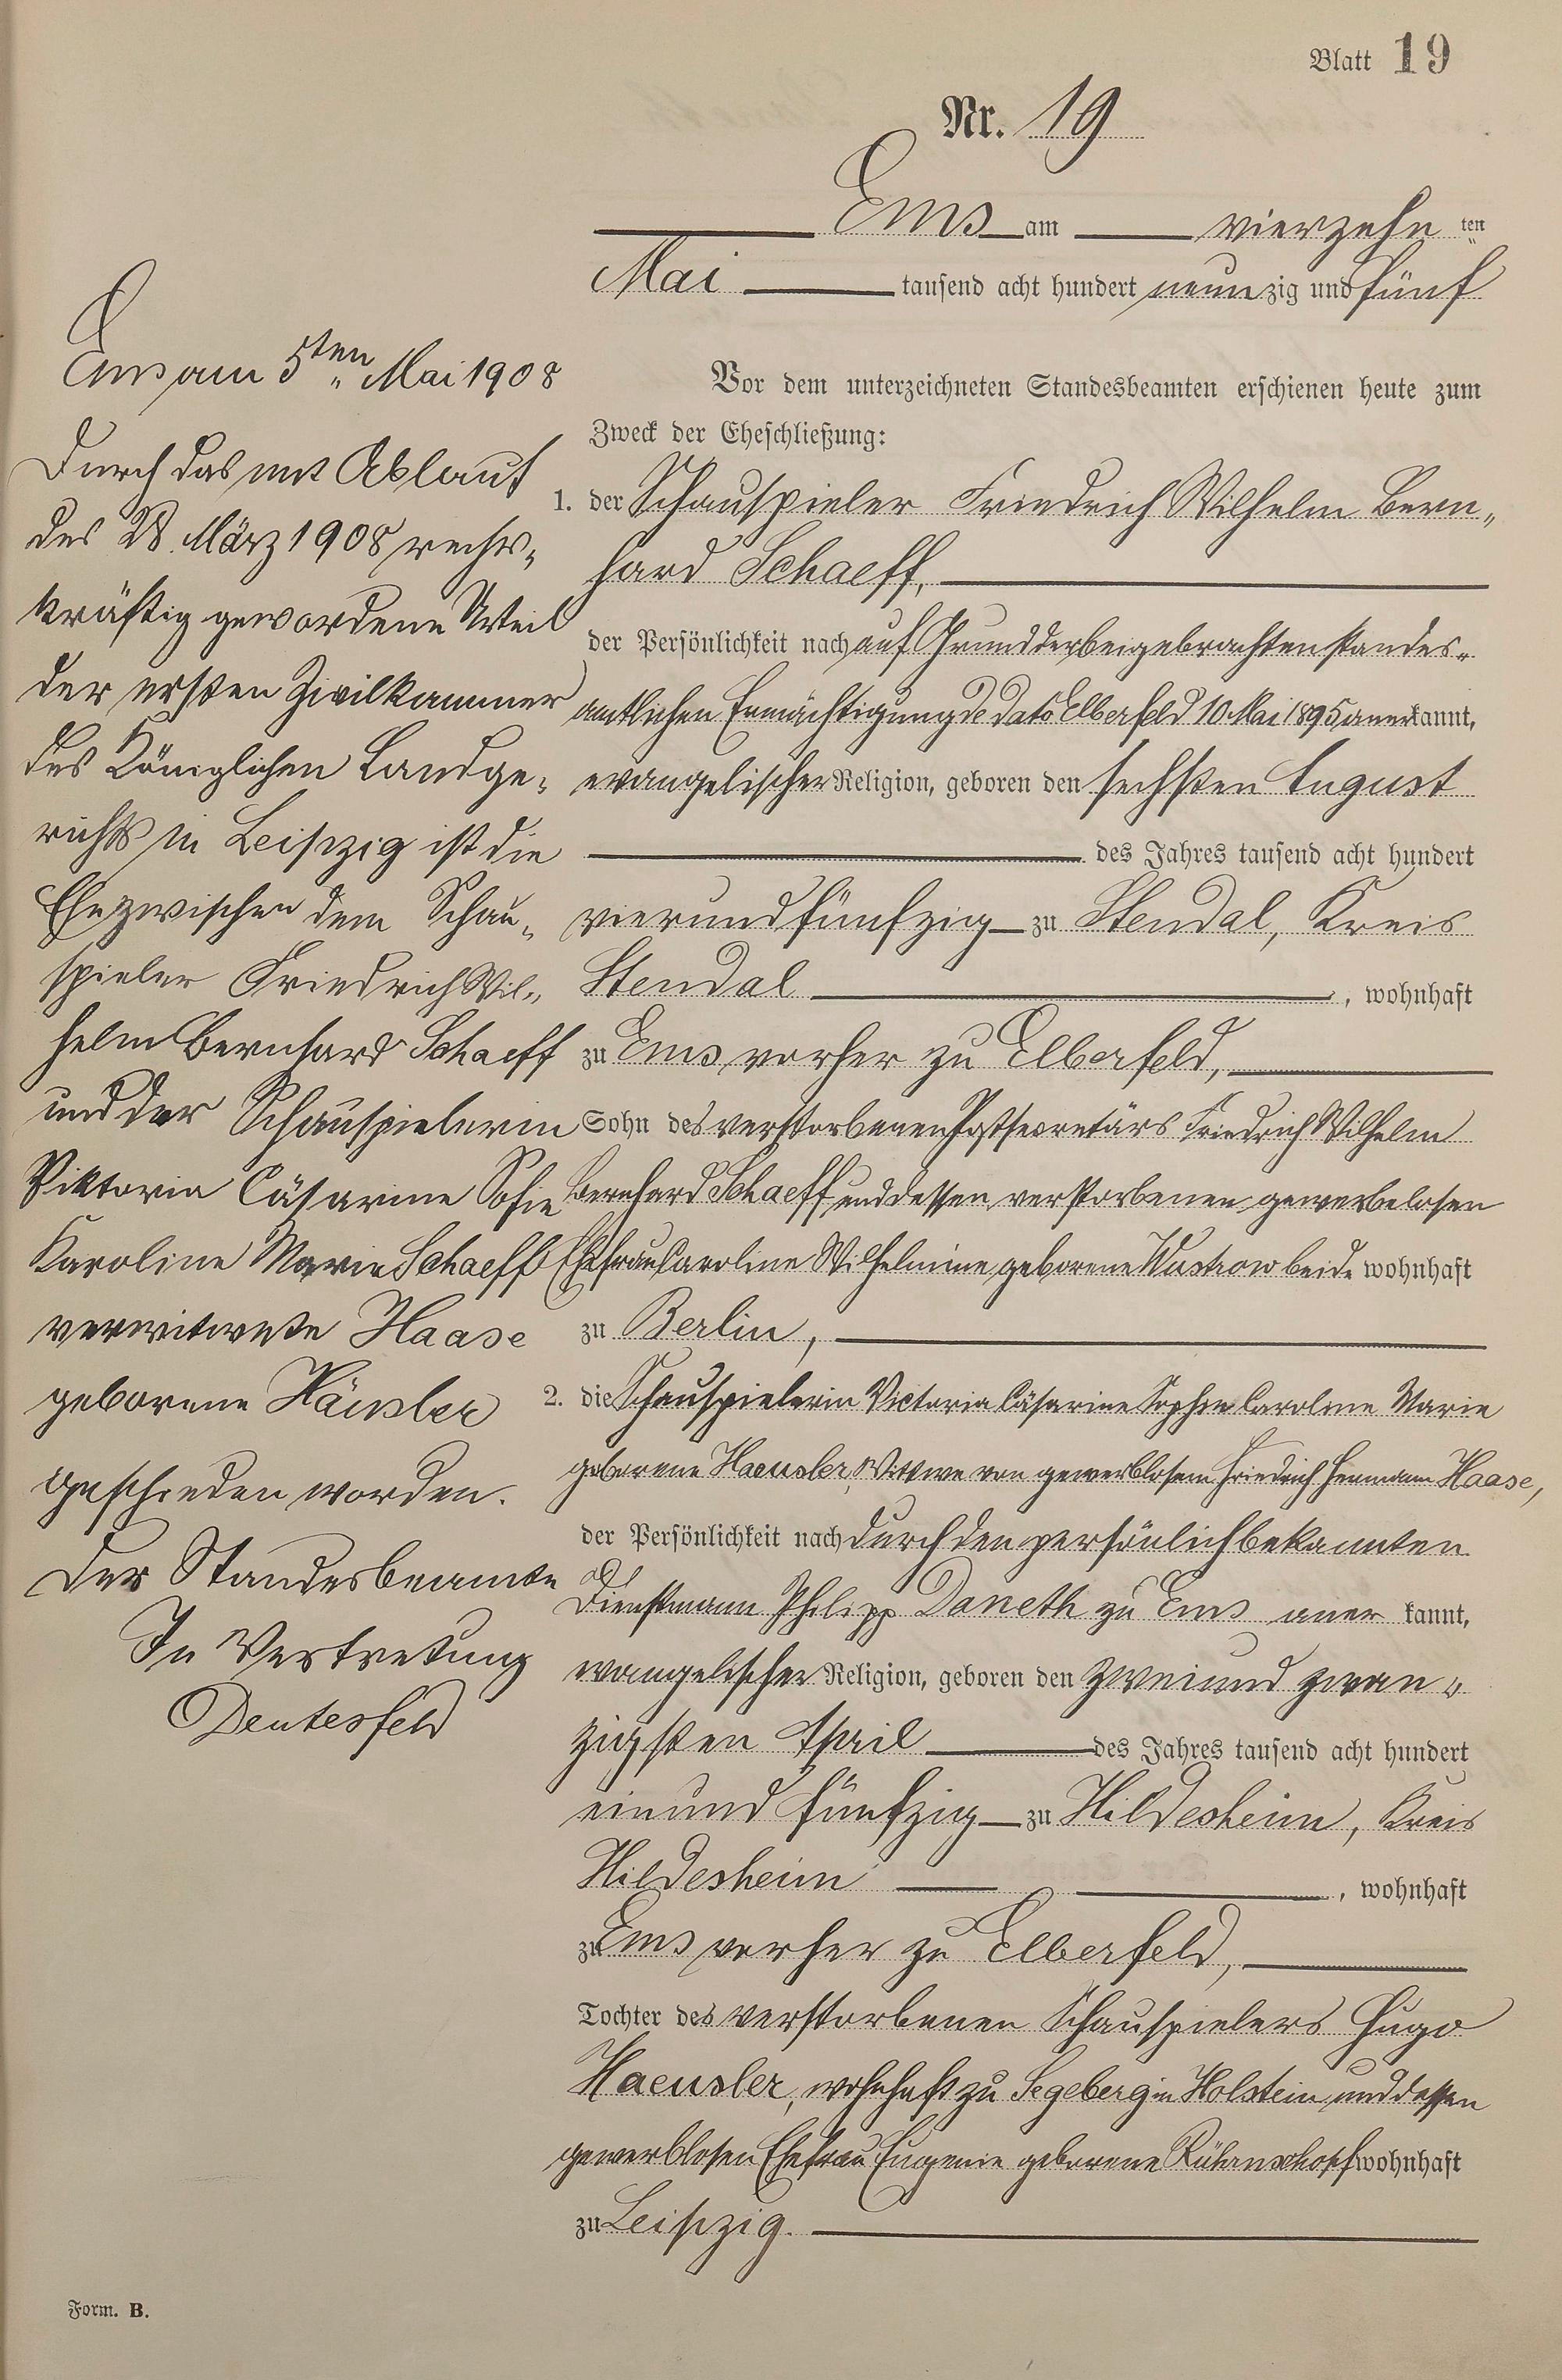 Blatt 19
Nr. 19
Ems am vierzehn ten
Mai tausend acht hundert neunzig und fünf
Vor dem unterzeichneten Standesbeamten erschienen heute zum
Zweck der Eheschließung:
1. der Schauspieler Friedrich Wilhelm Bern„
hard Schaeff,
der Persönlichkeit nach auf Grund der beigebrachten standes„
amtlichen Ermächtigung de dato Elberfeld 10 Mai 1895 anerkannt,
evangelischer Religion, geboren den sechsten August
des Jahres tausend acht hundert
vierundfünfzig zu Stendal, Kreis
Stendal, wohnhaft
zu Ems vorher zu Elberfeld,
Sohn des verstorbenen Postsecretärs Friedrich Wilhelm
Bernhard Schaeff und dessen verstorbenen gewerbelosen
Ehefrau Caroline Wilhelmine geborene Wustrow beide wohnhaft
zu Berlin,
2. die Schauspielerin Victoria Cäsarine Sophie Caroline Marie
geborene Haeusler, Wittwe von gewerblosem Friedrich Hermann Haase,
der Persönlichkeit nach durch den persönlich bekannten
Dienstmann Philipp Daneth zu Ems anerkannt,
evangelischer Religion, geboren den zweiund zwan„
zigsten April des Jahres tausend acht hundert
einund fünfzig zu Hildesheim, Kreis
Hildesheim, wohnhaft
zu Ems vorher zu Elberfeld,
Tochter des verstorbenen Schauspielers Hugo
Haeusler, wohnhaft zu Segeberg in Holstein und dessen
gewerblosen Ehefrau Eugenie geborene wohnhaft
zu Leipzig.
Ems am 5ten Mai 1908
Durch das mit Ablauf
des 28. März 1908 rechts„
kräftig gewordene Urteil
der ersten Zivilkammer
des Königlichen Landge„
richts in Leipzig ist die
Ehe zwischen dem Schau„
spieler Friedrich Wil„
helm Bernhard Schaeff
und der Schauspielerin
Viktoria Cäsarine Sofie
Karoline Marie Schaeff
verwitwete Haase
geborene Häusler
geschieden worden.
Der Standesbeamte
In Vertretung
Deutesfeld
Form. B.